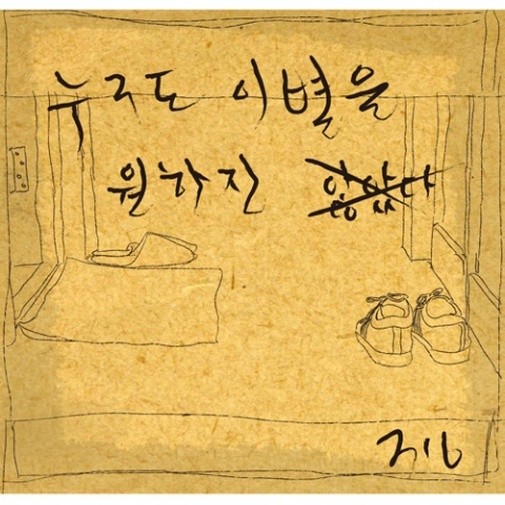 누구도 이별을
원하진 않았다